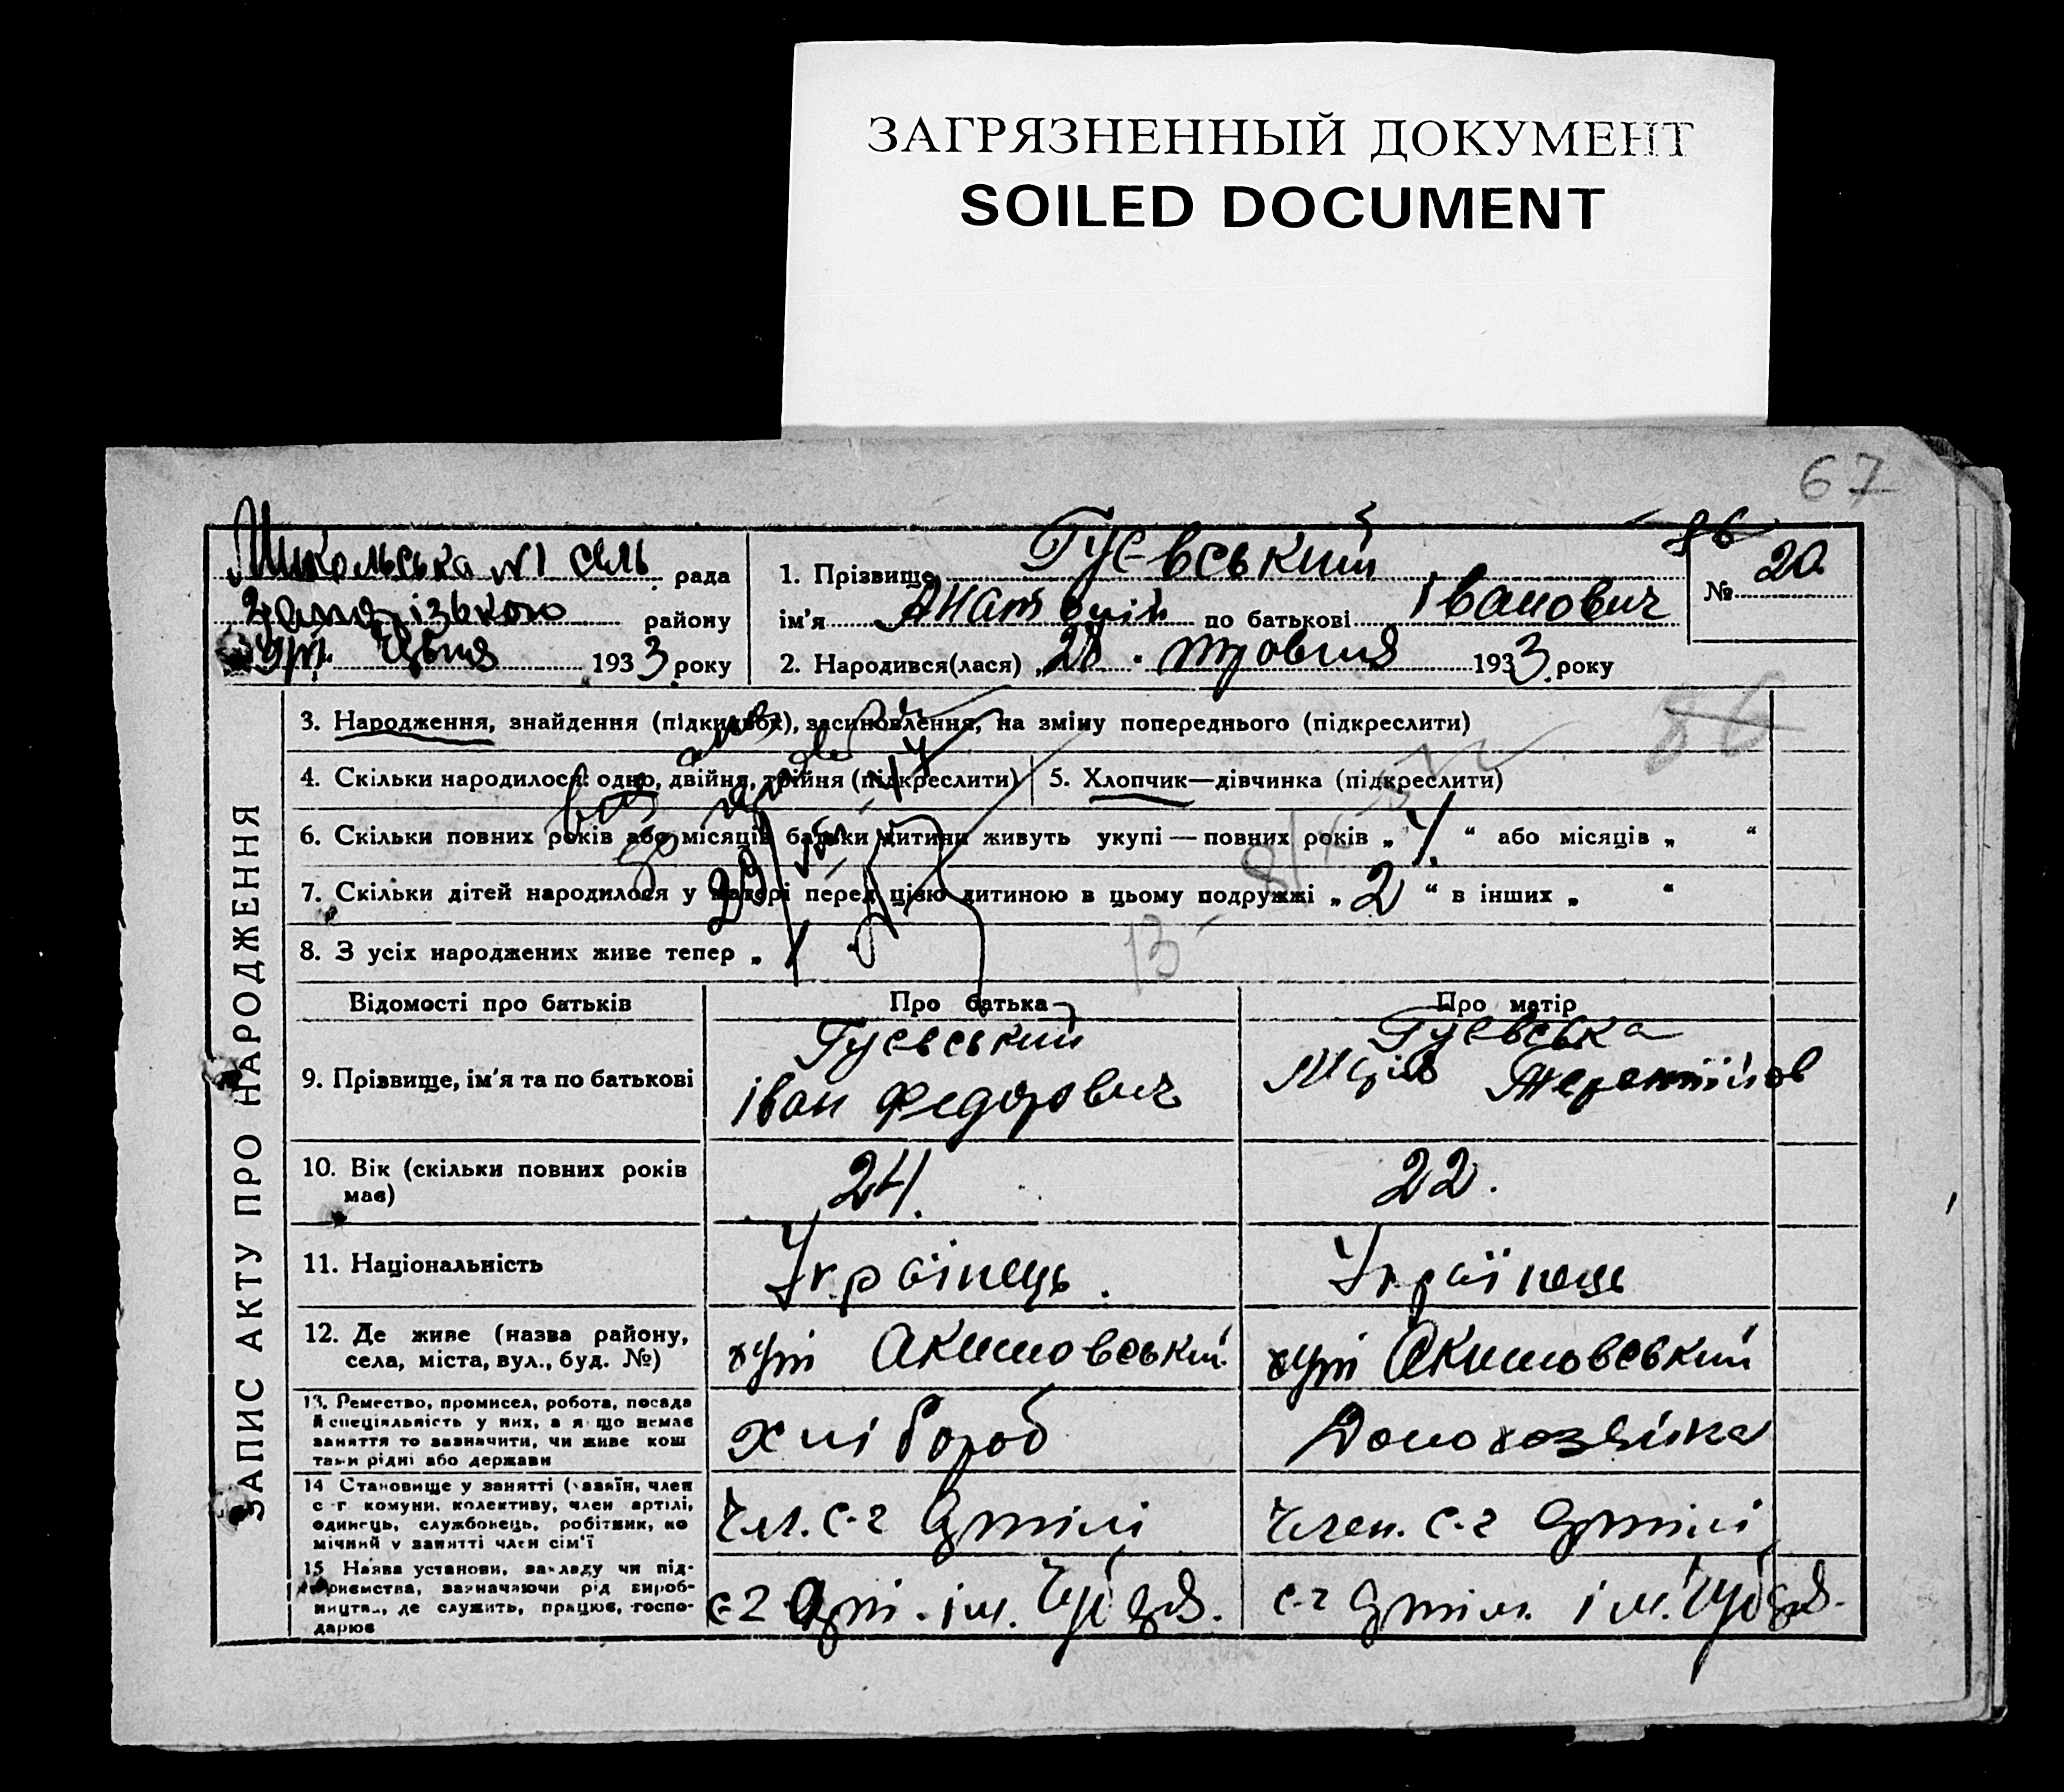 ЗАГРЯЗНЕННЫЙ ДОКУМЕНТ
SOILED DOCUMENT
67
86
Микольська №1 сель рада
району
1933 року
1. Прізвище Гуєвський
ім'я Анатолій по батькові Іванович
2. Народився(лася) „28 " травня 1933 року
№ 20
ЗАПИС АКТУ ПРО НАРОДЖЕННЯ
3. Народження, знайдення (підкидьок), засиновлення, на зміну попереднього (підкреслити)
86
4. Скільки народилося: одно, двійня, трійня (підкреслити)
5. Хлопчик—дівчинка (підкреслити)
6. Скільки повних років або місяців батьки дитини живуть укупі — повних років „ 4. “ або місяців „ “
7. Скільки дітей народилося у матері перед цією дитиною в цьому подружжі „ 2 “ в інших „ “
8. З усіх народжених живе тепер „ 1
Відомості про батьків
Про батька
Про матір
9. Прізвище, ім'я та по батькові
Гуєвський
Іван Федорович
Гуєвська
Марія
10. Вік (скільки повних років має)
24.
22.
11. Національність
Українець.
Українець
12. Де живе (назва району,
села, міста, вул., буд. №)
хут Акимовський
хут Акимовський
13. Ремество, промисел, робота, посада
й спеціяльність у них, а я що немає
заняття то зазначити, чи живе кош
тами рідні або держави
Хлібороб
Домохозяйка
14 Становище у занятті (хазяїн, член
с-г комуни, колективу, член артілі,
одинець, службовець, робітник, по
мічний у занятті член сім'ї
Чл. с-г Артілі
Член. с-г Артілі
15 Назва установи, закладу чи під-
приємства, зазначаючи рід вироб-
ництва, де служить, працює, госпо-
дарює
с-г Арт. ім. Чубаря.
с-г Артіл. ім. Чубаря.